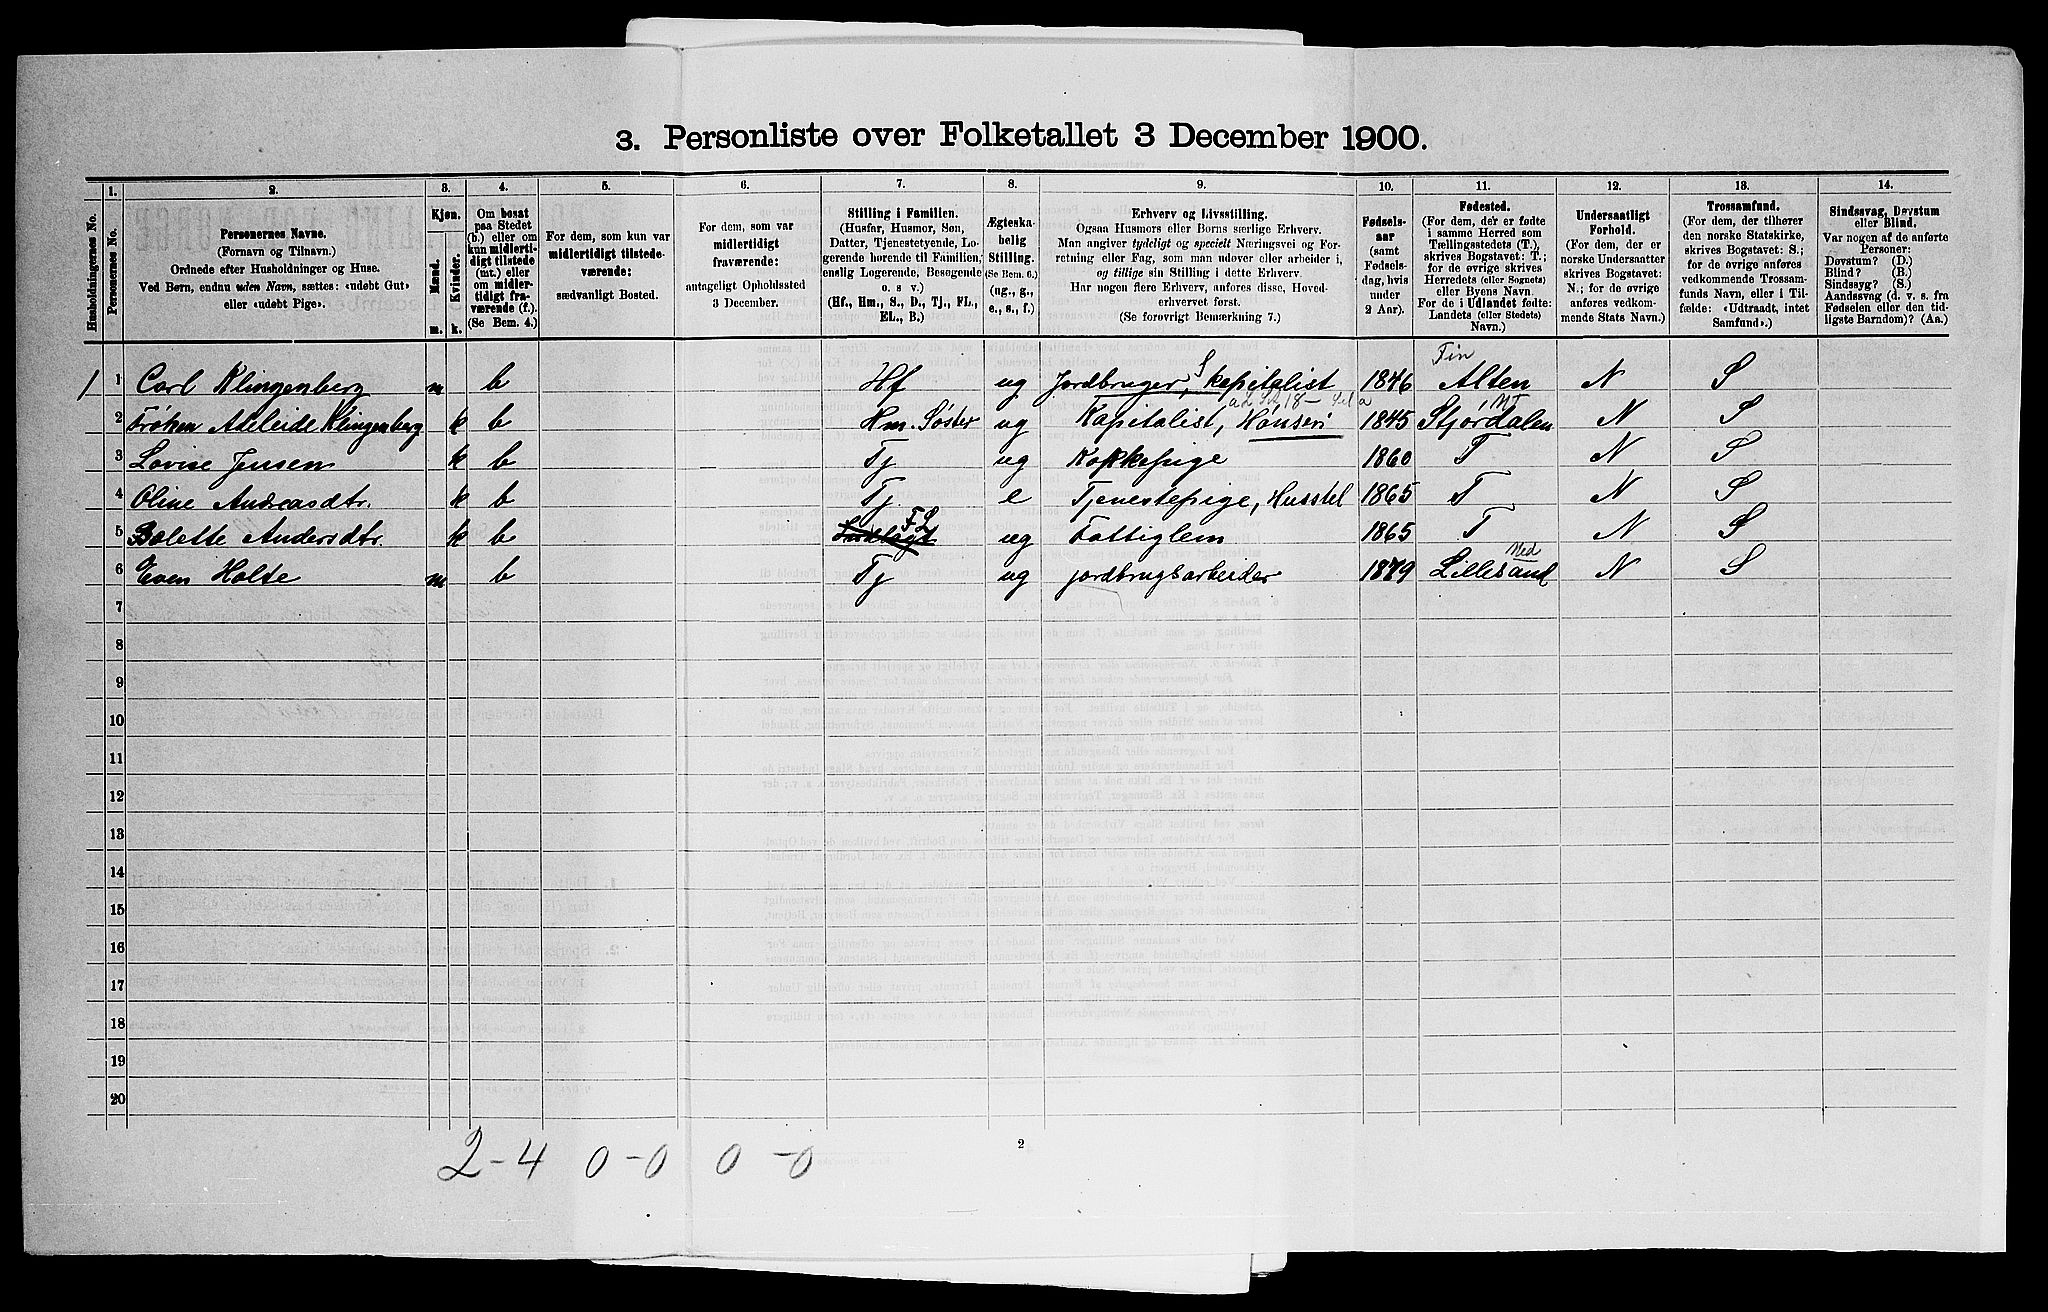 3. Personliste over Folketallet 3 December 1900.
1. 2. 3. 4. 5. 6. 7. 8. 9. 10. 11. 12. 13. 14.
Husholdningernes No.
Personernes No.
Personernes Navne.
(Fornavn og Tilnavn.)
Ordnede efter Husholdninger og Huse.
Ved Børn, endnu uden Navn, sættes: «udøbt Gut»
eller «udøbt Pige».
Kjøn.
Mænd.
Kvinder.
m. k.
Om bosat
paa Stedet
(b.) eller om
kun midlerti-
digt tilstede
(mt.) eller
om midler-
tidigt fra-
værende (f.).
(Se Bem. 4.)
For dem, som kun var
midlertidigt tilstede-
værende:
sædvanligt Bosted.
For dem, som var
midlertidigt
fraværende:
antageligt Opholdssted
3 December.
Stilling i Familien.
(Husfar, Husmor, Søn,
Datter, Tjenestetyende, Lo-
gerende hørende til Familien,
enslig Logerende, Besøgende
o. s v.)
(Hf., Hm., S., D., Tj., FL.,
EL., B.)
Ægteska-
belig
Stilling.
(Se Bem. 6.)
(ug., g.,
e., s., f.)
Erhverv og Livsstilling.
Ogsaa Husmors eller Børns særlige Erhverv.
Man angiver tydeligt og specielt Næringsvei og For-
retning eller Fag, som man udøver eller arbeider i,
og tillige sin Stilling i dette Erhverv.
Har nogen flere Erhverv, anføres disse, Hoved-
erhvervet først.
(Se forøvrigt Bemærkning 7.)
Fødsels-
aar
(samt
Fødsels-
dag, hvis
under
2 Aar).
Fødested.
(For dem, der er fødte
i samme Herred som
Tællingsstedets (T.),
skrives Bogstavet: T.;
for de øvrige skrives
Herredets (eller Sognets)
eller Byens Navn.
For de i Udlandet fødte:
Landets (eller Stedets)
Navn.)
Undersaatligt
Forhold.
(For dem, der er
norske Undersaatter
skrives Bogstavet:
N.; for de øvrige
anføres vedkom-
mende Stats Navn.)
Trossamfund.
(For dem, der tilhører
den norske Statskirke,
skrives Bogstavet: S.;
for de øvrige anføres
vedkommende Trossam-
funds Navn, eller i Til-
fælde: «Udtraadt, intet
Samfund».)
Sindssvag, Døvstum
eller Blind.
Var nogen af de anførte
Personer:
Døvstum? (D.)
Blind? (B.)
Sindssyg? (S.)
Aandssvag (d. v. s. fra
Fødselen eller den tid-
ligste Barndom)? (Aa.)
Fin
1 1 Carl Klingenberg m b Hf ug Jordbruger, S kapitalist 1846 Alten N S
2 Frøken Adeleide Klingenberg k b Hm. Søster ug Kapitalist, Hansen 1845 Stjørdalen NT N S
3 Lovise Jensen k b Tj ug Kokkepige 1860 T N S
4 Oline Andreasdtr. k b Tj e Tjenestepige, Husstel 1865 T N S
5 Bolette Andersdtr. k b FL ug Fattiglem 1865 T N S
6 Even Holte m b Tj ug jordbrugsarbeider 1879 Lillesand Ned N S
7
8
9
10
11
12
13
14
15
16
17
18
19
20
2
2-4 0-0 0-0